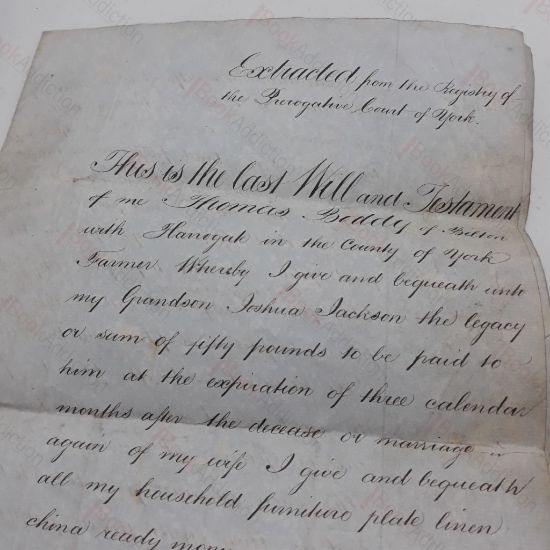 Extracted from the Registry of
the Prerogative Court of York.
This is the last Will and Testament
of me Thomas Boddy of Bilton
with Harrogate in the County of York
Farmer Whereby I give and bequeath unto
my Grandson Joshua Jackson the legacy
or sum of fifty pounds to be paid to
him at the expiration of three calendar
months after the decease or marriage
again of my wife I give and bequeath
all my household furniture plate linen
china ready
BookAddiction